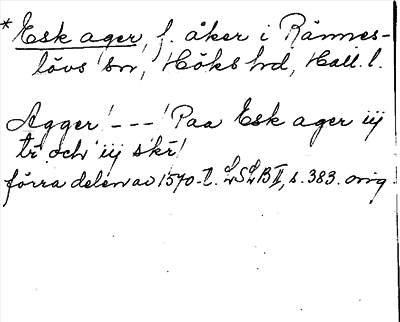 * Esk ager, f. åker i Rännes-
lövs sn, Höks hd, Hall. l.
Agger! --- ! Paa Esk ager iij
tr och iij skr!
förra delen av 1570-t. B II, s. 383. orig.